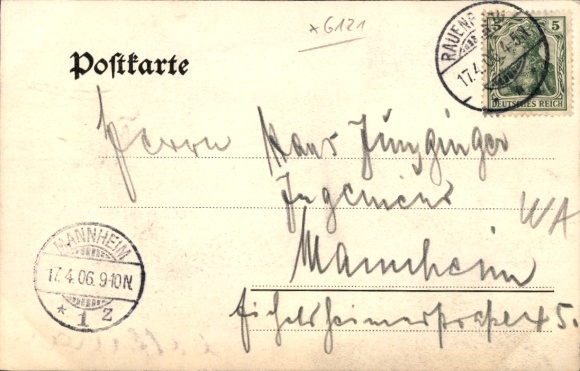 *G121
Postkarte
RAUEN
17.4.
5 5
DEUTSCHES REICH
Herrn Hans Junginger
Ingenieur
WA
Mannheim
Eichelsheimerstraße 45.
MANNHEIM
17.4.06.9-10N.
* 1 z